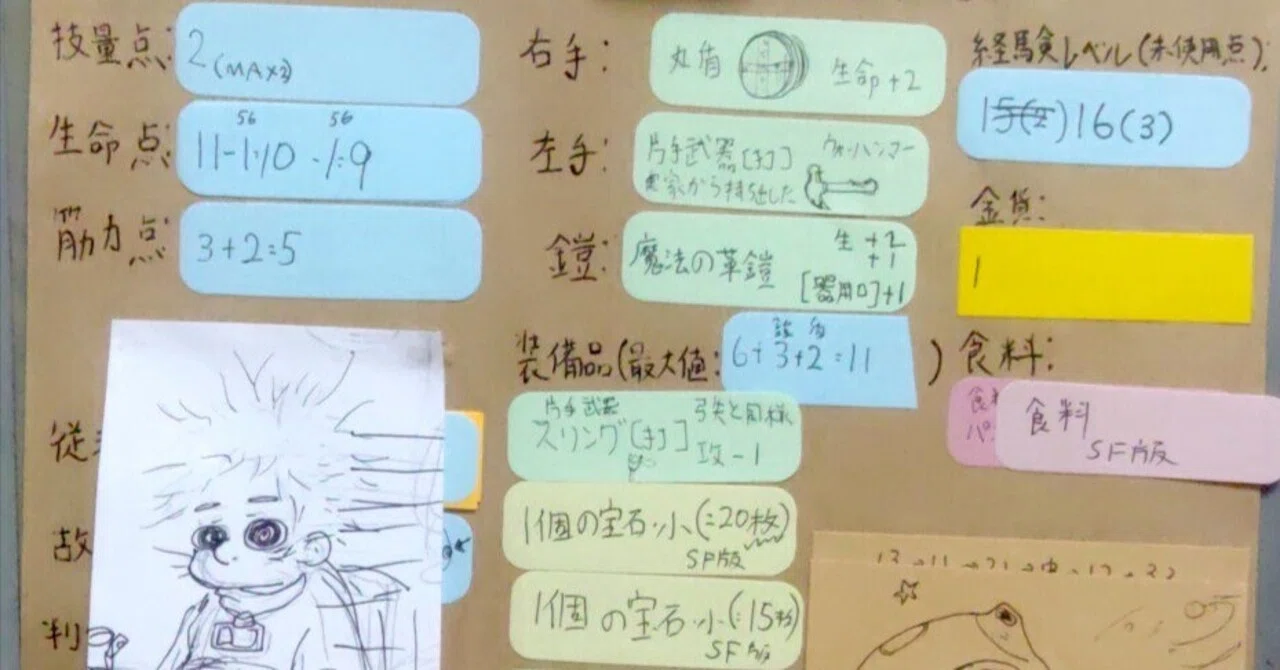 技量点:
2(MAX2)
生命点:
56 56
11-1:10 -1:9
筋力点:
3+2=5
従
故
判
右手:
丸盾
生命+2
左手:
片手武器[打] ウォーハンマー
鎧:
魔法の革鎧
生+2
+1
[器用0]+1
装備品(最大値:
6+3+2=11
)
片手武器
スリング[打]
弓矢と同様
攻-1
1個の宝石・小(:20枚)
SF版
1個の宝石・小(:15枚)
SF版
経験レベル(未使用点):
15(2)16(3)
金貨:
1
食料:
食料
SF版